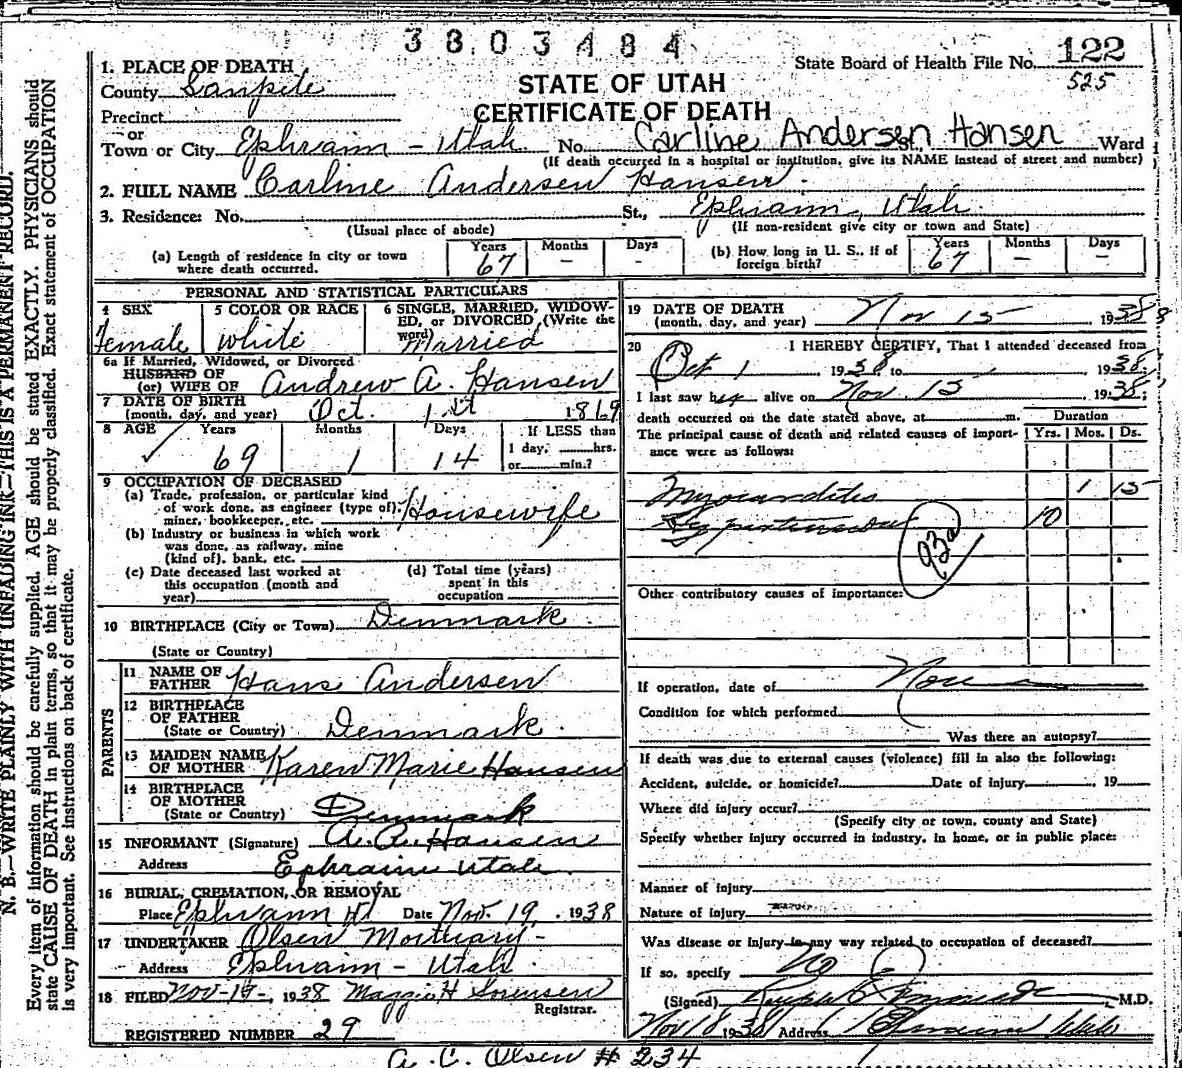 3803484
State Board of Health File No. 122
525
STATE OF UTAH
CERTIFICATE OF DEATH
1. PLACE OF DEATH
County Sanpete
Precinct
or
Town or City Ephraim - Utah. No. Carline Andersen Hansen St., Ward
(If death occurred in a hospital or institution, give its NAME instead of street and number)
2. FULL NAME Carline Andersen Hansen.
3. Residence: No. St., Ephraim, Utah.
(Usual place of abode) (If non-resident give city or town and State)
(a) Length of residence in city or town where death occurred. Years 67 Months – Days –
(b) How long in U. S., if of foreign birth? Years 67 Months – Days –
PERSONAL AND STATISTICAL PARTICULARS
4 SEX Female
5 COLOR OR RACE white
6 SINGLE, MARRIED, WIDOWED, or DIVORCED (Write the word) Married
6a If Married, Widowed, or Divorced
HUSBAND OF
(or) WIFE OF Andrew A. Hansen
7 DATE OF BIRTH
(month, day, and year) Oct. 1st 1869
8 AGE Years 69 Months 1 Days 14 If LESS than 1 day, hrs. or min.?
9 OCCUPATION OF DECEASED
(a) Trade, profession, or particular kind of work done, as engineer (type of) miner, bookkeeper, etc. Housewife
(b) Industry or business in which work was done, as railway, mine (kind of), bank, etc.
(c) Date deceased last worked at this occupation (month and year)
(d) Total time (years) spent in this occupation
10 BIRTHPLACE (City or Town) Denmark.
(State or Country)
PARENTS
11 NAME OF FATHER Hans Andersen
12 BIRTHPLACE OF FATHER
(State or Country) Denmark.
13 MAIDEN NAME OF MOTHER Karen Marie Hansen
14 BIRTHPLACE OF MOTHER
(State or Country) Denmark
15 INFORMANT (Signature) A. A. Hansen
Address Ephraim Utah.
16 BURIAL, CREMATION, OR REMOVAL
Place Ephraim Ut Date Nov. 19, 1938
17 UNDERTAKER Olsen Mortuary-
Address Ephraim - Utah.
18 FILED Nov-19-, 1938 Maggie H Sorensen
Registrar.
REGISTERED NUMBER 29
19 DATE OF DEATH
(month, day, and year) Nov 15, 1938
20 I HEREBY CERTIFY, That I attended deceased from
Oct 1 1938 to , 1938
I last saw her alive on Nov. 15, 1938;
death occurred on the date stated above, at m.
The principal cause of death and related causes of importance were as follows:
Duration
Yrs. Mos. Ds.
Myocarditis 1 15
Hypertension 10
93a
Other contributory causes of importance:
If operation, date of None
Condition for which performed
Was there an autopsy?
If death was due to external causes (violence) fill in also the following:
Accident, suicide, or homicide? Date of injury , 19
Where did injury occur?
(Specify city or town, county and State)
Specify whether injury occurred in industry, in home, or in public place:
Manner of injury
Nature of injury
Was disease or injury in any way related to occupation of deceased?
If so, specify No
(Signed) M.D.
Nov 18 1938 Address Ephraim Utah
A. C. Olsen # 234
N. B.—WRITE PLAINLY WITH UNFADING INK—THIS IS A PERMANENT RECORD.
Every item of information should be carefully supplied. AGE should be stated EXACTLY. PHYSICIANS should
state CAUSE OF DEATH in plain terms, so that it may be properly classified. Exact statement of OCCUPATION
is very important. See instructions on back of certificate.